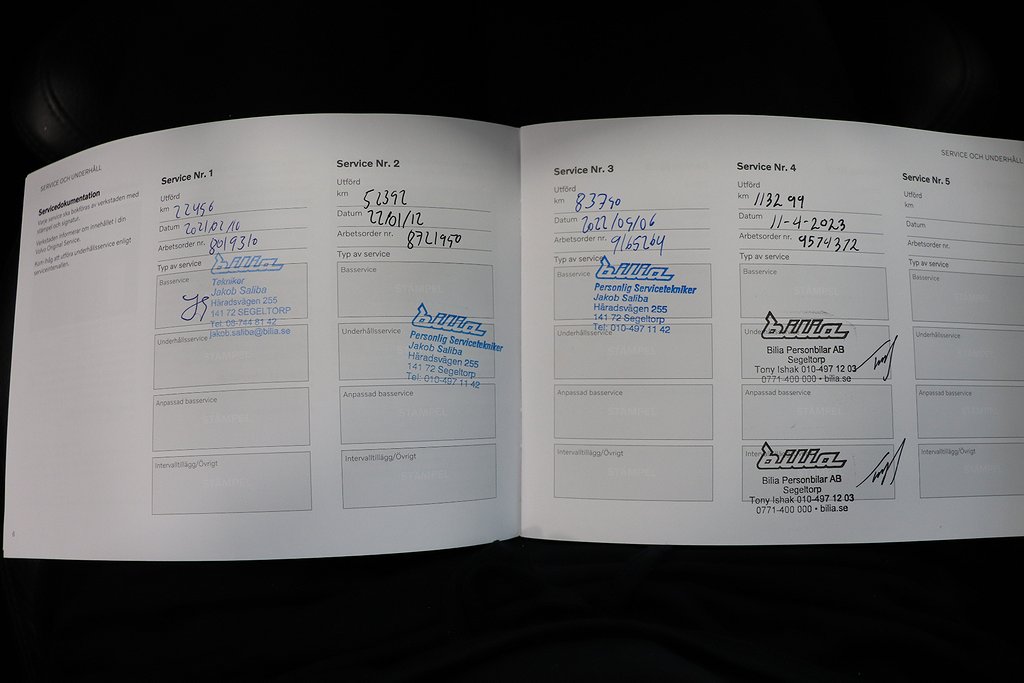 SERVICE OCH UNDERHÅLL
Servicedokumentation
Varje service ska bokföras av verkstaden med
stämpel och signatur.
Verkstaden informerar om innehållet i din
Volvo Original Service.
Kom ihåg att utföra underhållsservice enligt
serviceintervallen.
6
Service Nr. 1
Utförd
km 22456
Datum 2021/02/10
Arbetsorder nr. 8019310
Typ av service
Basservice
bilia
Tekniker
Jakob Saliba
Häradsvägen 255
141 72 SEGELTORP
Tel: 08-744 81 42
jakob.saliba@bilia.se
Underhållsservice
STÄMPEL
Anpassad basservice
STÄMPEL
Intervalltillägg/Övrigt
STÄMPEL
Service Nr. 2
Utförd
km 52392
Datum 22/01/12
Arbetsorder nr. 8721950
Typ av service
Basservice
STÄMPEL
Underhållsservice
bilia
Personlig Servicetekniker
Jakob Saliba
Häradsvägen 255
141 72 Segeltorp
Tel: 010-497 11 42
Anpassad basservice
STÄMPEL
Intervalltillägg/Övrigt
STÄMPEL
Service Nr. 3
Utförd
km 83790
Datum 2022/09/06
Arbetsorder nr. 9165264
Typ av service
Basservice
bilia
Personlig Servicetekniker
Jakob Saliba
Häradsvägen 255
141 72 Segeltorp
Tel: 010-497 11 42
Underhållsservice
STÄMPEL
Anpassad basservice
STÄMPEL
Intervalltillägg/Övrigt
STÄMPEL
Service Nr. 4
Utförd
km 113299
Datum 11-4-2023
Arbetsorder nr. 9574372
Typ av service
Basservice
STÄMPEL
bilia
Bilia Personbilar AB
Segeltorp
Tony Ishak 010-497 12 03
0771-400 000 • bilia.se
Anpassad basservice
STÄMPEL
bilia
Bilia Personbilar AB
Segeltorp
Tony Ishak 010-497 12 03
0771-400 000 • bilia.se
SERVICE OCH UNDERHÅLL
Service Nr. 5
Utförd
km
Datum
Arbetsorder nr.
Typ av service
Basservice
Underhållsservice
Anpassad basservice
Intervalltillägg/Övrigt